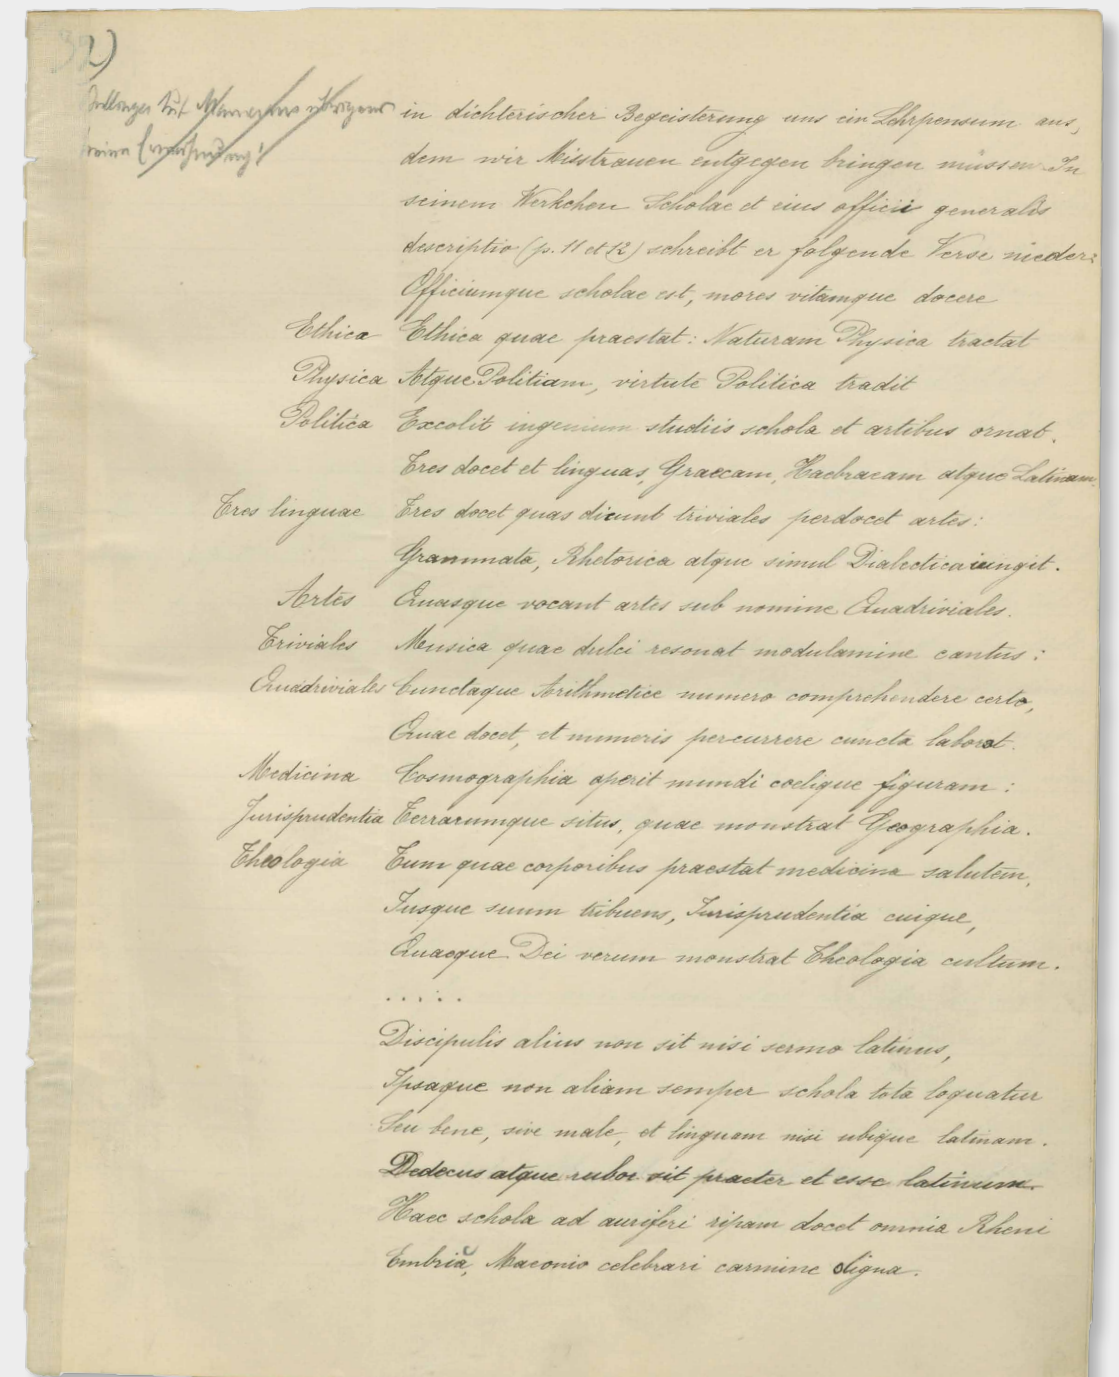 32)
tut
keine Erwähnung!
in dichterischer Begeisterung uns ein Lehrpensum aus,
dem wir Misstrauen entgegen bringen müssen. In
seinem Werkchen Scholae et eius officii generalis
descriptio (p. 11 et 12) schreibt er folgende Verse nieder:
Officiumque scholae est, mores vitamque docere
Ethica Ethica quae praestat: Naturam Physica tractat
Physica Atque Politiam, virtute Politica tradit
Politica Excolit ingenium studiis schola et artibus ornat.
Tres docet et linguas, Graecam, Haebraeam atque Latinam.
Tres linguae Tres docet quas dicunt triviales perdocet artes:
Grammata, Rhetorica atque simul Dialectica iungit.
Artes Quasque vocant artes sub nomine Quadriviales.
Triviales Musica quae dulci resonat modulamine cantus:
Quadriviales Cunctaque Arithmetice numero comprehendere certo,
Quae docet, et numeris percurrere cuncta laborat.
Medicina Cosmographia aperit mundi coelique figuram:
Jurisprudentia Terrarumque situs, quae monstrat Geographia.
Theologia Tum quae corporibus praestat medicina salutem,
Iusque suum tribuens, Iurisprudentia cuique,
Quaeque Dei verum monstrat Theologia cultum.
.....
Discipulis alius non sit nisi sermo latinus,
Ipsaque non aliam semper schola tota loquatur
Seu bene, sive male, et linguam nisi ubique latinam.
Dedecus atque rubor sit praeter et esse latinum.
Haec schola ad auriferi ripam docet omnia Rheni
Embrica, Maeonio celebrari carmine digna.